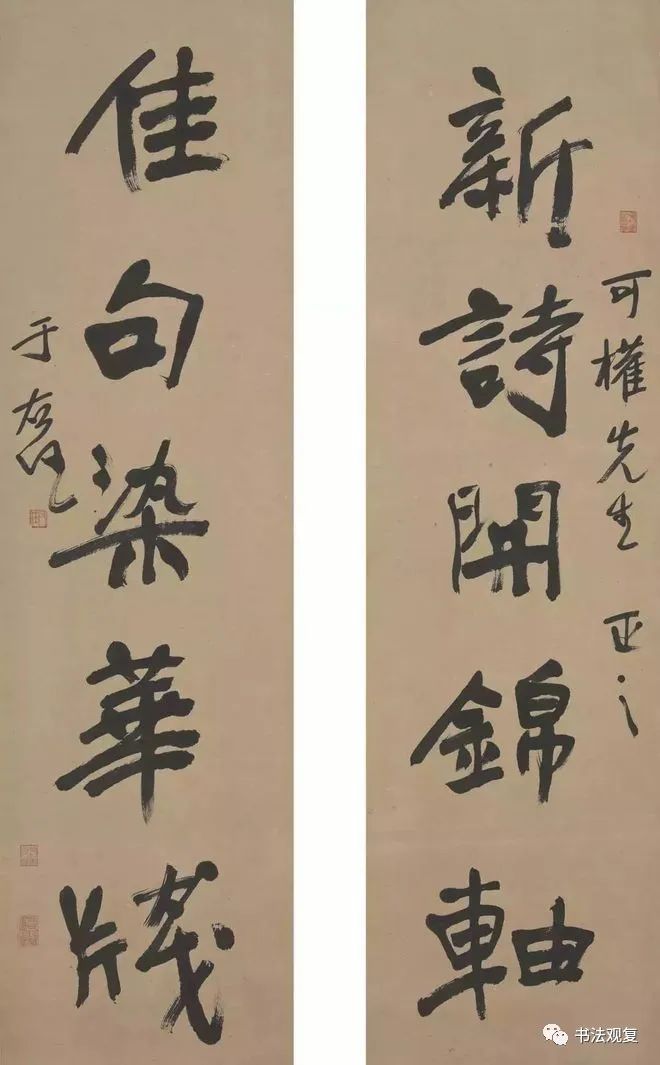 可權先生 正之
新詩開錦軸
佳句染華牋
于右任
书法观复